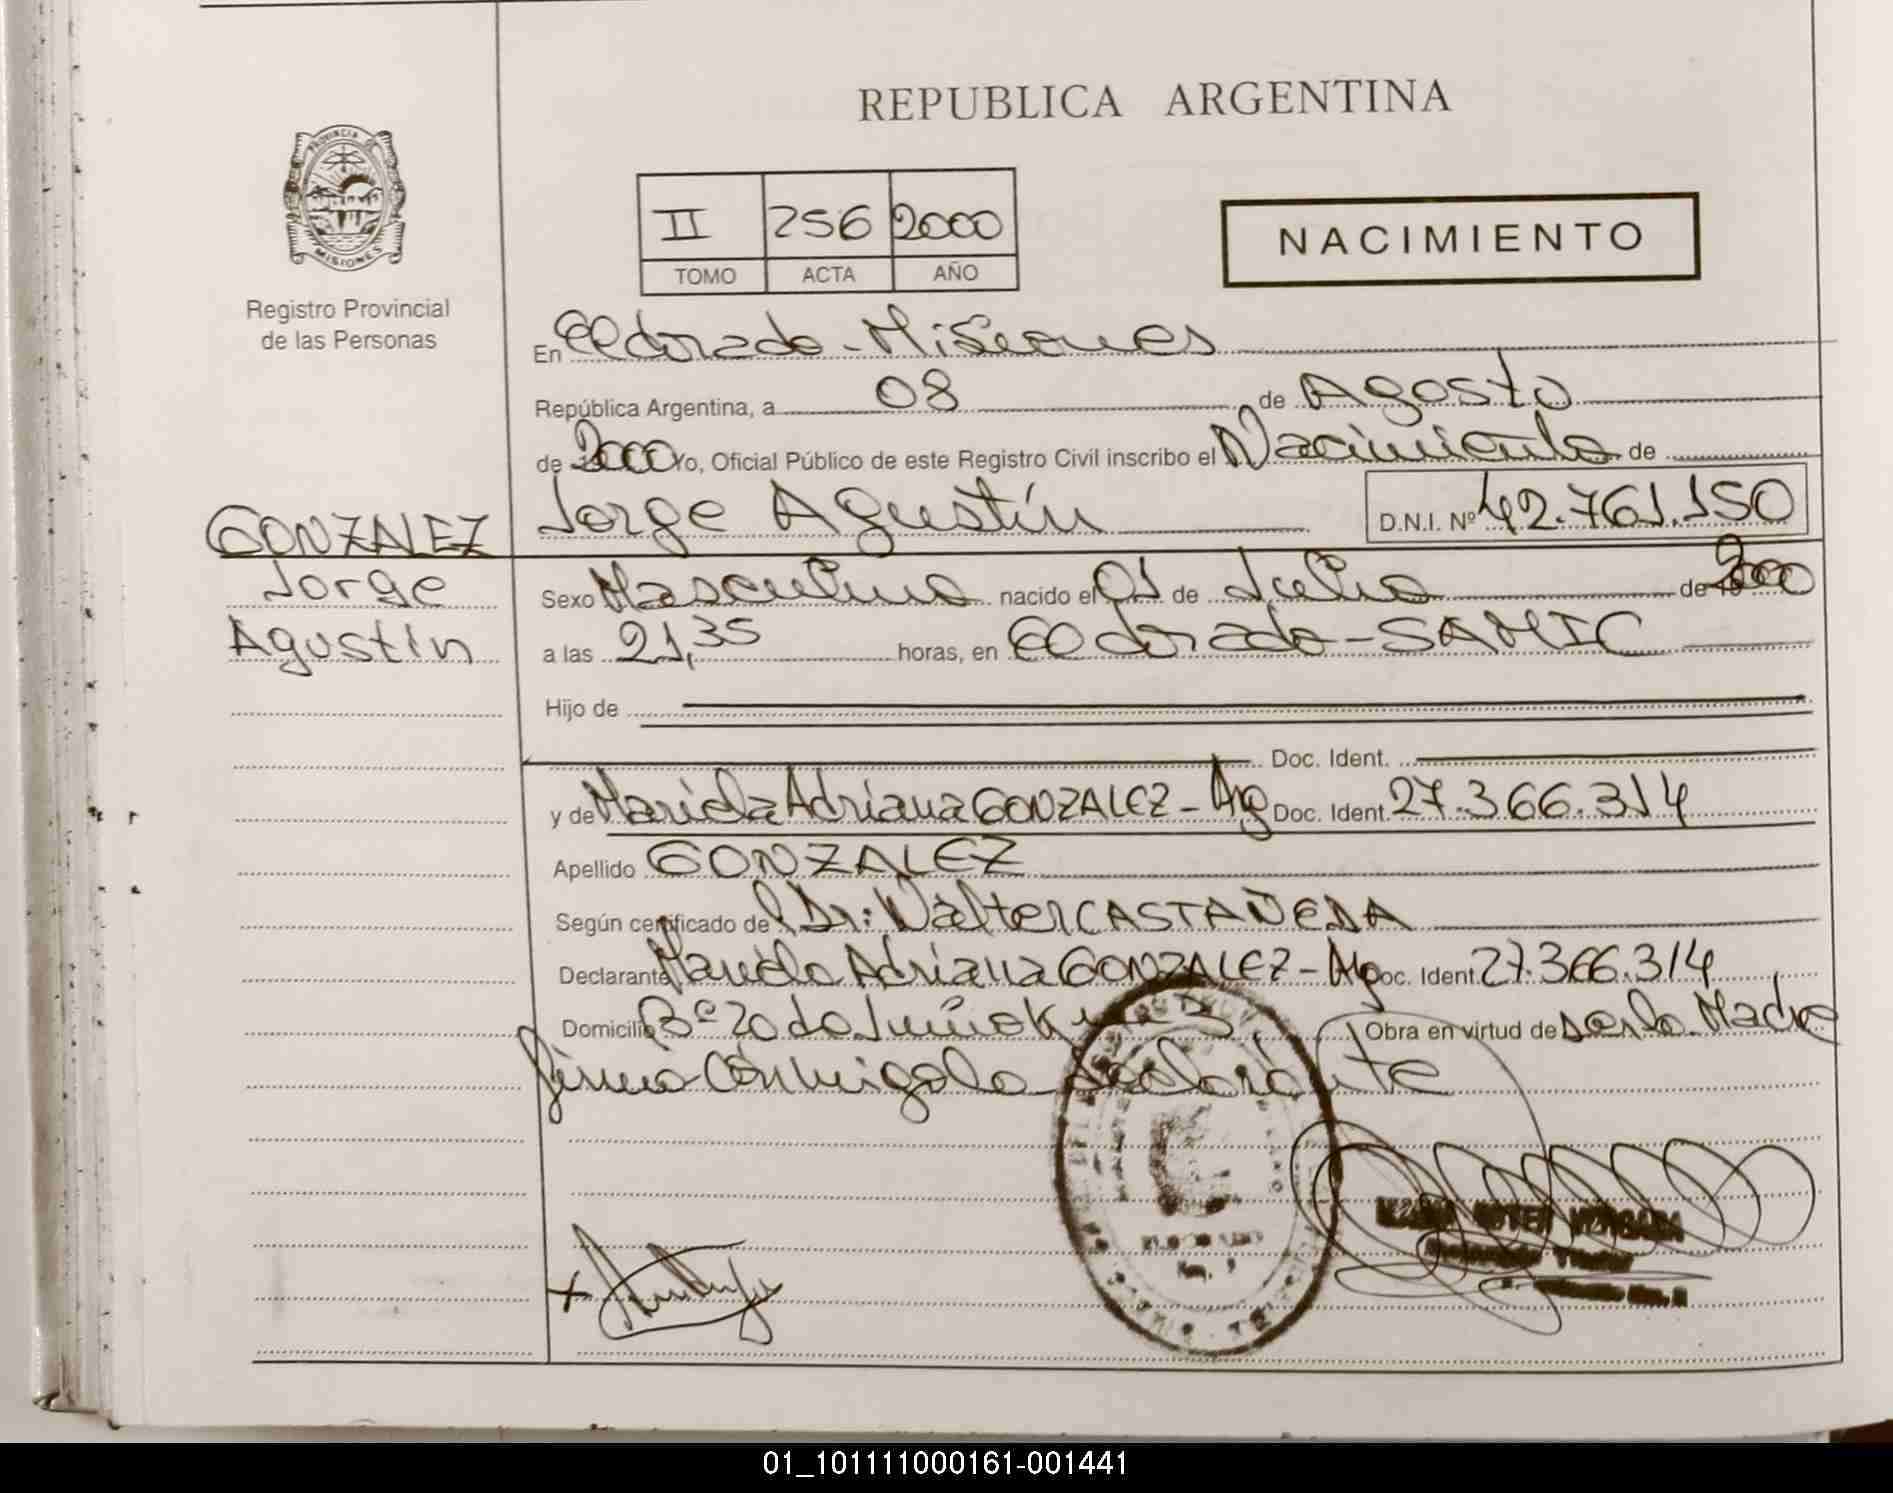 REPUBLICA ARGENTINA
PROVINCIA DE
MISIONES
Registro Provincial
de las Personas
II 256 2000
TOMO ACTA AÑO
NACIMIENTO
En Eldorado - Misiones
República Argentina, a 08 de Agosto
de 2000 Yo, Oficial Público de este Registro Civil inscribo el Nacimiento de
Jorge Agustín D.N.I. Nº 42.761.150
GONZALEZ
Jorge
Agustín
Sexo Masculino nacido el 01 de Julio de 2000
a las 21,35 horas, en Eldorado - SAMIC
Hijo de
Doc. Ident.
y de Mariela Adriana GONZALEZ - Arg Doc. Ident. 27.366.314
Apellido GONZALEZ
Según certificado de Dr. Walter CASTAÑEDA
Declarante Mariela Adriana GONZALEZ - Arg Doc. Ident 27.366.314
Domicilio Bº 20 de Junio Km 3 Obra en virtud de ser la Madre
firma conmigo la declarante
ELDORADO
Km.
X
01_101111000161-001441